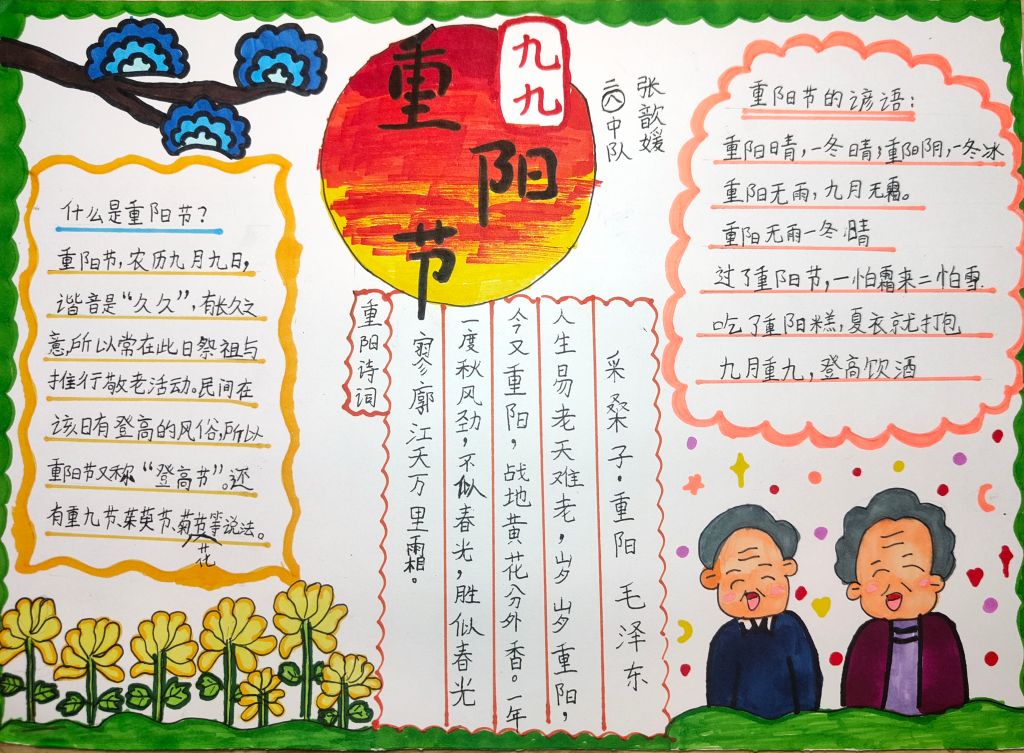 重阳节
九九
张歆媛
二(6)中队
什么是重阳节？
重阳节，农历九月九日，
谐音是“久久”，有长久之
意，所以常在此日祭祖与
推行敬老活动。民间在
该日有登高的风俗，所以
重阳节又称“登高节”。还
有重九节、茱萸节、菊花节等说法。
重阳诗词
采桑子·重阳 毛泽东
人生易老天难老，岁岁重阳，
今又重阳，战地黄花分外香。一年
一度秋风劲，不似春光，胜似春光
寥廓江天万里霜。
重阳节的谚语：
重阳晴，一冬晴；重阳阴，一冬冰
重阳无雨，九月无霜。
重阳无雨一冬晴
过了重阳节，一怕霜来二怕雪.
吃了重阳糕，夏衣就打包
九月重九，登高饮酒